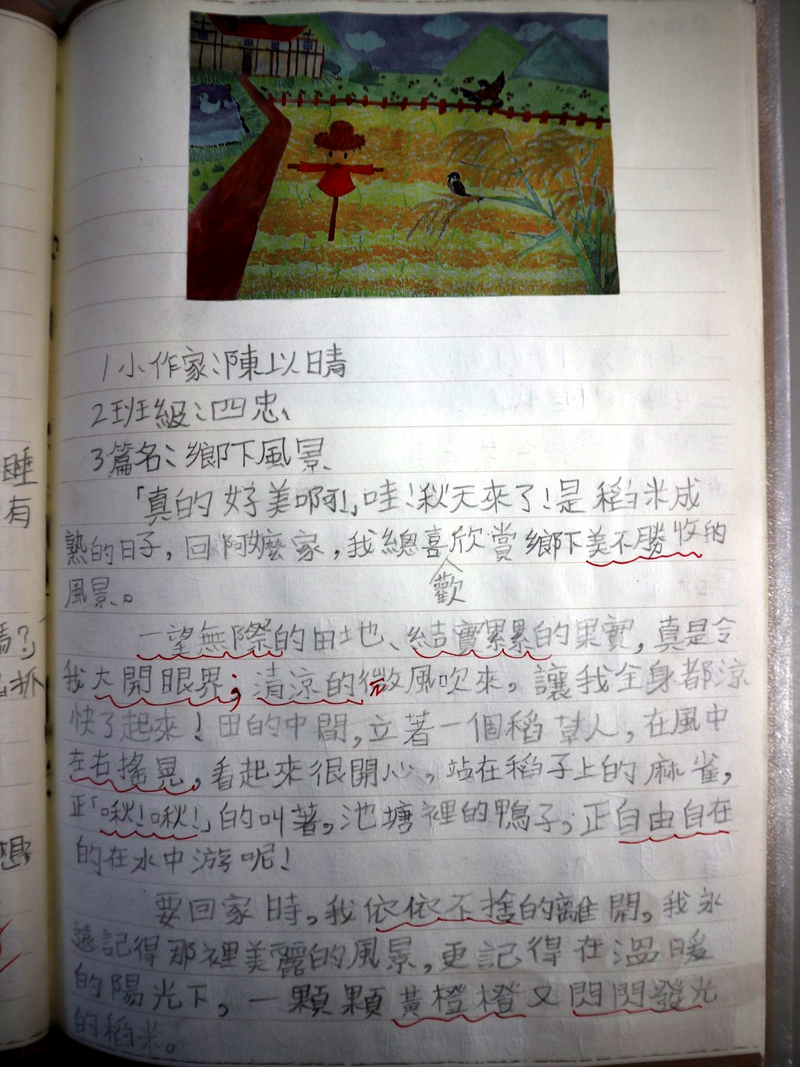 睡
有
嗎?
抓
想
1小作家:陳以晴
2班級:四忠
3篇名:鄉下風景
「真的好美啊!」哇!秋天來了!是稻米成
熟的日子,回阿嬤家,我總喜歡欣賞鄉下美不勝收的
風景。
一望無際的田地、結實累累的果實,真是令
我大開眼界;清涼的微風吹來,讓我全身都涼
快了起來!田的中間,立著一個稻草人,在風中
左右搖晃,看起來很開心,站在稻子上的麻雀,
正「啾!啾!」的叫著,池塘裡的鴨子,正自由自在
的在水中游呢!
要回家時,我依依不捨的離開,我永
遠記得那裡美麗的風景,更記得在溫暖
的陽光下,一顆顆黃橙橙又閃閃發光
的稻米。